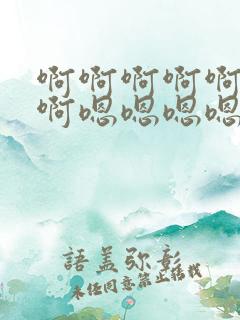 啊啊啊啊啊
啊嗯嗯嗯嗯
語盖弥彰
未经同意禁止搭找